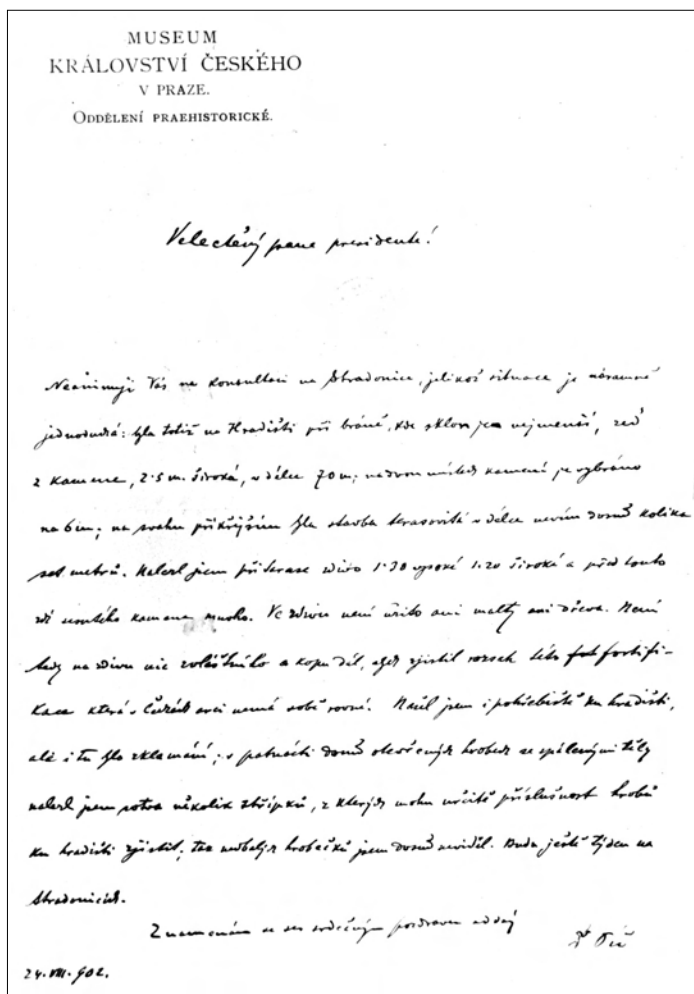 MUSEUM
KRÁLOVSTVÍ ČESKÉHO
V PRAZE.
ODDĚLENÍ PRAEHISTORICKÉ.
Velectěný pane presidente!
Vás na konsultaci na Stradonice, jelikož situace je náramně
jednoduchá: byla totiž na Hradišti při bráně, kde sklon jest nejmenší, zeď
z kamene, 2·5 m. široká, v délce 70 m; na dvou místech kamení je vybráno
na 6 m; na svahu příkřejším byla stavba terasovitá v délce nevím dosud kolika
set metrů. Nalezl jsem při terase zdivo 1·30 vysoké 1·20 široké a před touto
zdí kamene mnoho. Ve zdivu není užito ani malty ani dřeva. Není
tedy na zdivu nic zvláštního a kopu dál, abych zjistil rozsah této fortifi-
kace která v Čechách arci nemá sobě rovné. Našel jsem i pohřebiště ku hradišti,
ale i tu bylo zklamání; v patnácti dosud otevřených hrobech se spálenými těly
nalezl jsem sotva několik střípků, z kterých mohu určitě příslušnost hrobů
ku hradišti zjistit; tak nedbalých hrobečků jsem dosud neviděl. Budu ještě týden na
Stradonicích.
Znamenám se se srdečným pozdravem oddaný
Dr Píč
24·VIII·902.